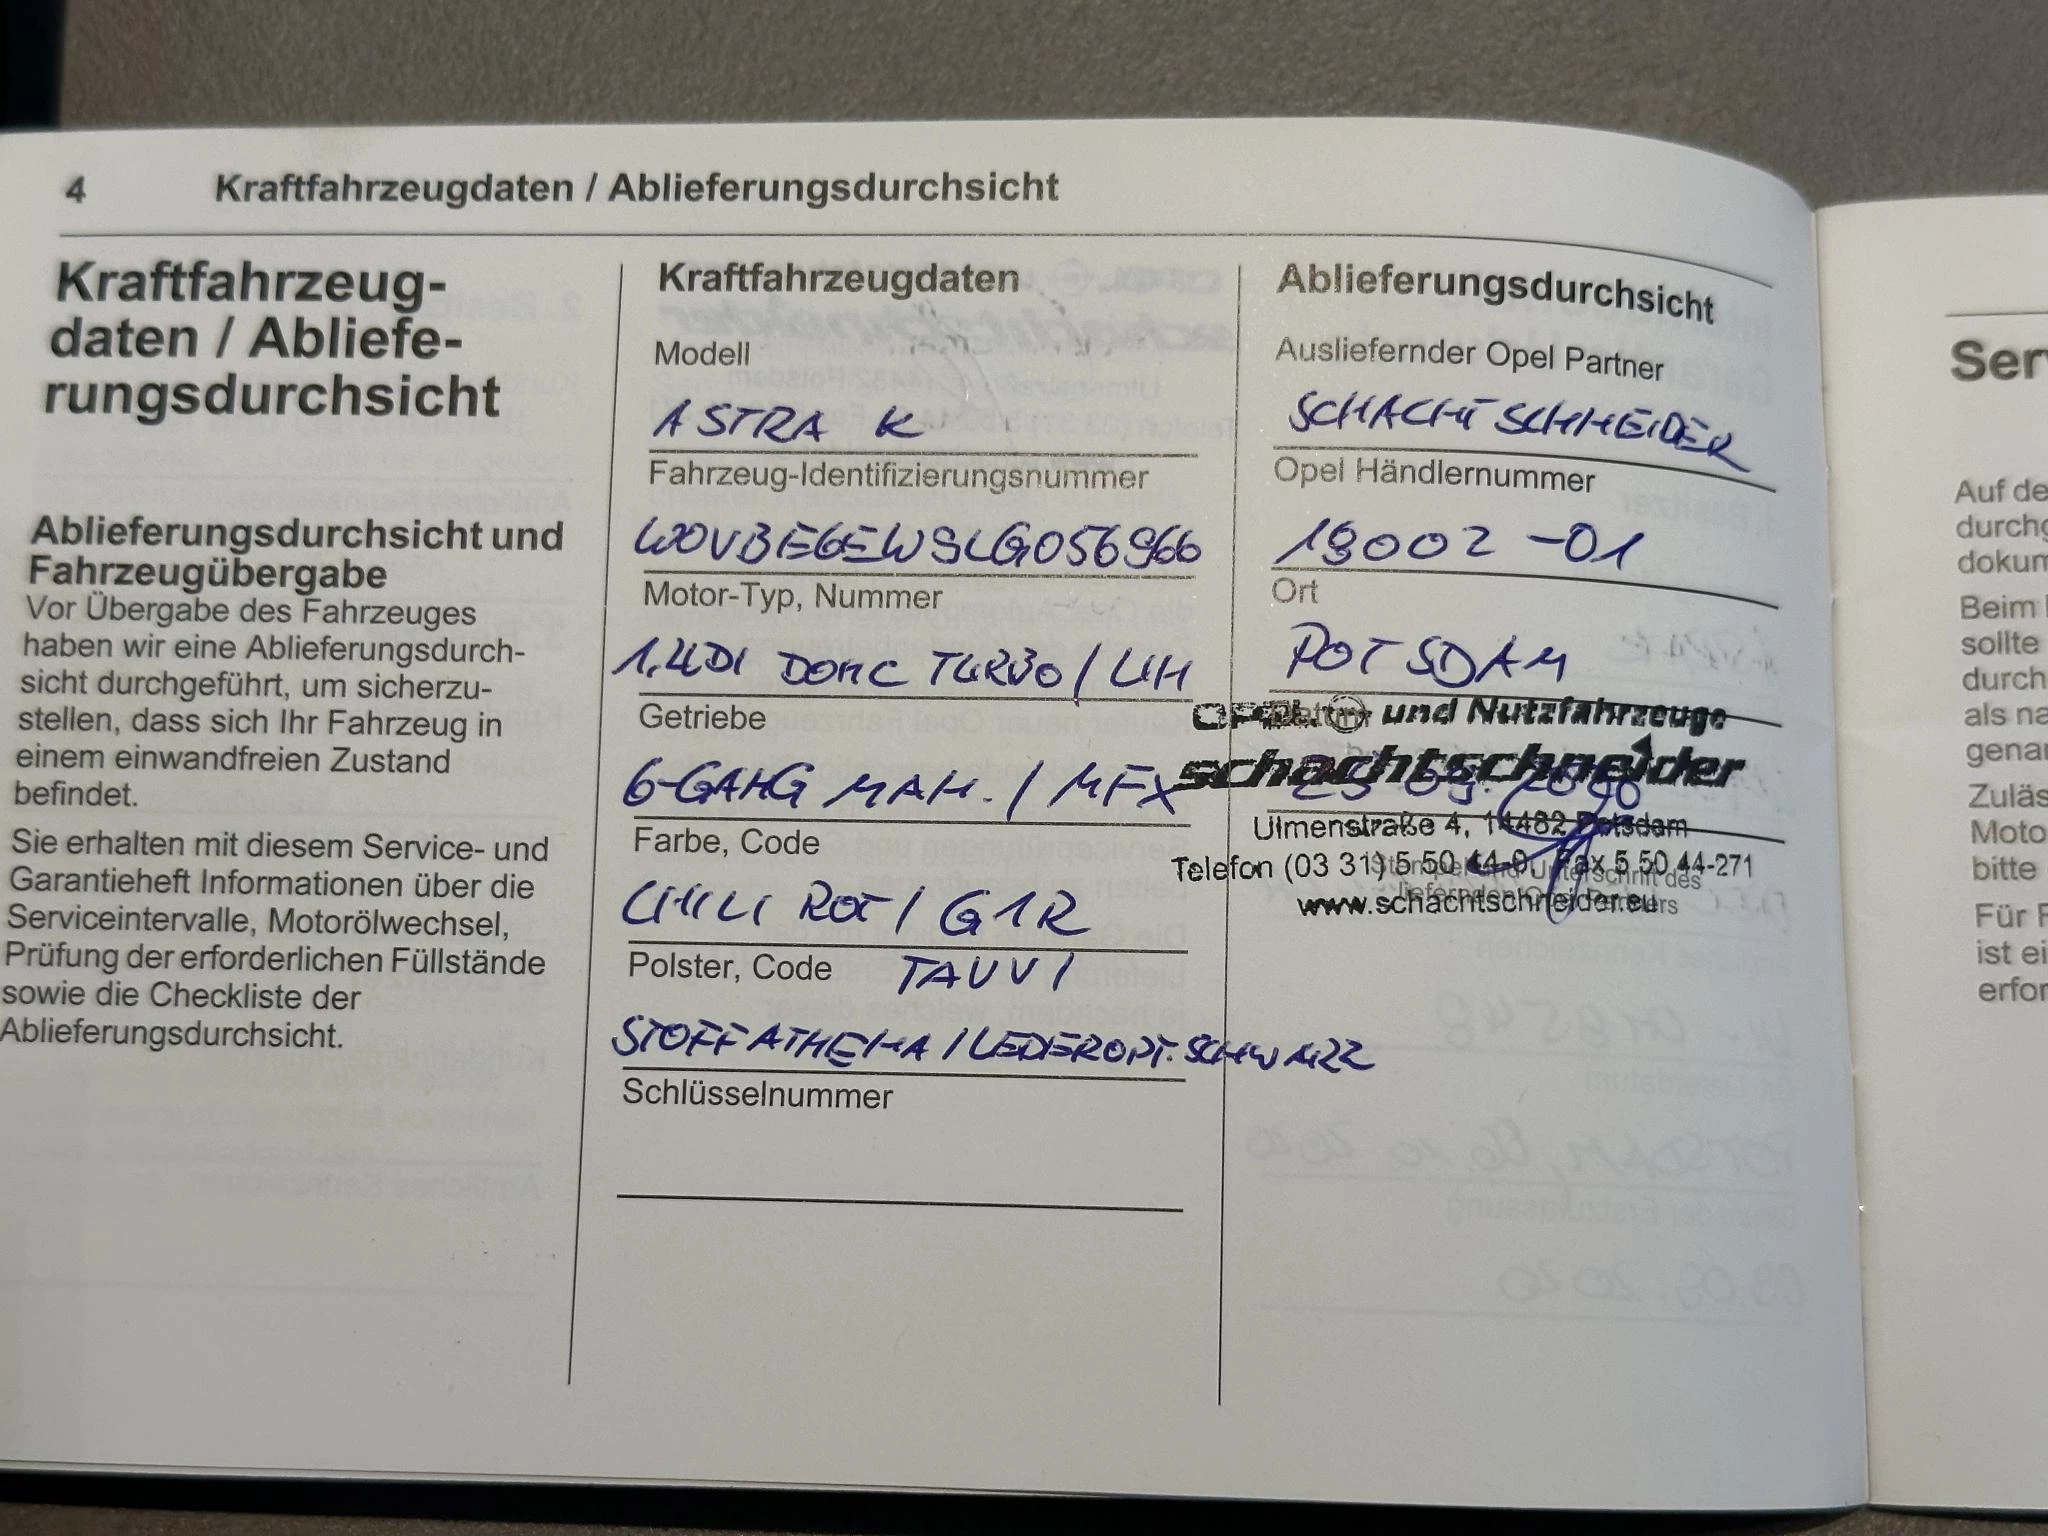 4 Kraftfahrzeugdaten / Ablieferungsdurchsicht
Kraftfahrzeug-
daten / Abliefe-
rungsdurchsicht
Ablieferungsdurchsicht und
Fahrzeugübergabe
Vor Übergabe des Fahrzeuges
haben wir eine Ablieferungsdurch-
sicht durchgeführt, um sicherzu-
stellen, dass sich Ihr Fahrzeug in
einem einwandfreien Zustand
befindet.
Sie erhalten mit diesem Service- und
Garantieheft Informationen über die
Serviceintervalle, Motorölwechsel,
Prüfung der erforderlichen Füllstände
sowie die Checkliste der
Ablieferungsdurchsicht.
Kraftfahrzeugdaten
Modell
ASTRA K
Fahrzeug-Identifizierungsnummer
W0VBE6EW9LG056966
Motor-Typ, Nummer
1,4DI DOHC TURBO / LIH
Getriebe
6-GANG MAN. / MFX
Farbe, Code
CHILI ROT / G1R
Polster, Code TAVV /
STOFF ATHENA / LEDEROPT. SCHWARZ
Schlüsselnummer
Ablieferungsdurchsicht
Ausliefernder Opel Partner
SCHACHTSCHNEIDER
Opel Händlernummer
19002 -01
Ort
POTSDAM
Datum
OPEL und Nutzfahrzeuge
schachtschneider
Ulmenstraße 4, 14482 Potsdam
Telefon (03 31) 5 50 44-0 Fax 5 50 44-271
Stempel und Unterschrift des
www.schachtschneider.eu
Ser
Auf de
durchg
dokum
Beim
sollte
durch
als na
genan
Zuläs
Moto
bitte
Für F
ist ei
erfor